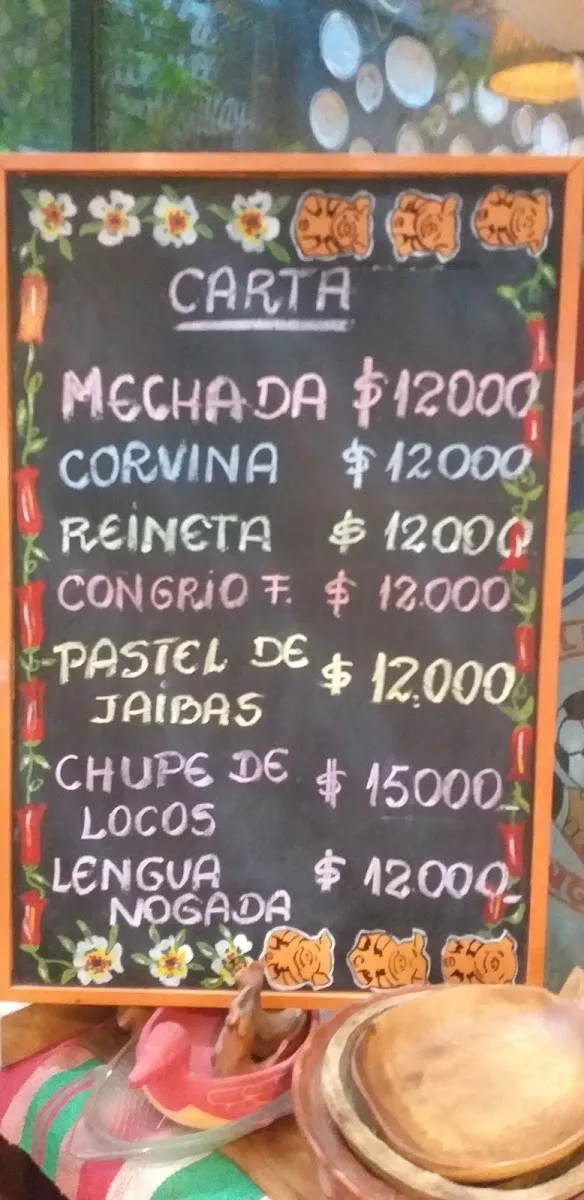 CARTA
MECHADA $12000
CORVINA $12000
REINETA $12000
CONGRIO F. $ 12.000
PASTEL DE $ 12.000
JAIBAS
CHUPE DE $ 15000
LOCOS
LENGUA $ 12000-
NOGADA